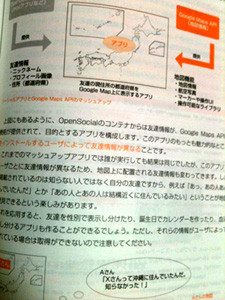 Google Maps API
提供
提供
アプリ
友達情報
・ニックネーム
・プロフィール画像
・住所(都道府県)
友達の現住所の都道府県を
Google Map上に表示するアプリ
地図機能
・地図情報
・航空写真
・マーカーや操作UI
・操作可能なライブラリ
アプリとGoogle Maps APIのマッシュアップ
上図にもあるように、OpenSocialのコンテナからは友達情報が、Google Maps AP
が提供されて、目的とするアプリを構成します。このアプリのもっとも魅力的なとこ
インストールするユーザによって友達情報が異なることです。
これまでのマッシュアップアプリでは誰が実行しても結果は同じでしたが、このアプリ
ごとに友達情報が異なるため、地図上に配置される友達情報も変わってきます。し
されているのは知らない人ではなく自分の友達ですから、例えば「あっ、あの人あ
んでいたんだ」とか「あの人とあの人は結構近くに住んでいるみたい」ということが地
できるという楽しみがあります。
を応用すると、友達を性別で表示し分けたり、誕生日でカレンダーを作ったり、血
分けるアプリも作ることができるでしょう。ただし、それらの情報がユーザによって
ている場合は取得ができないので注意してください。
Aさん
「Xさんって沖縄に住んでいたんだ、
知らなかった!」